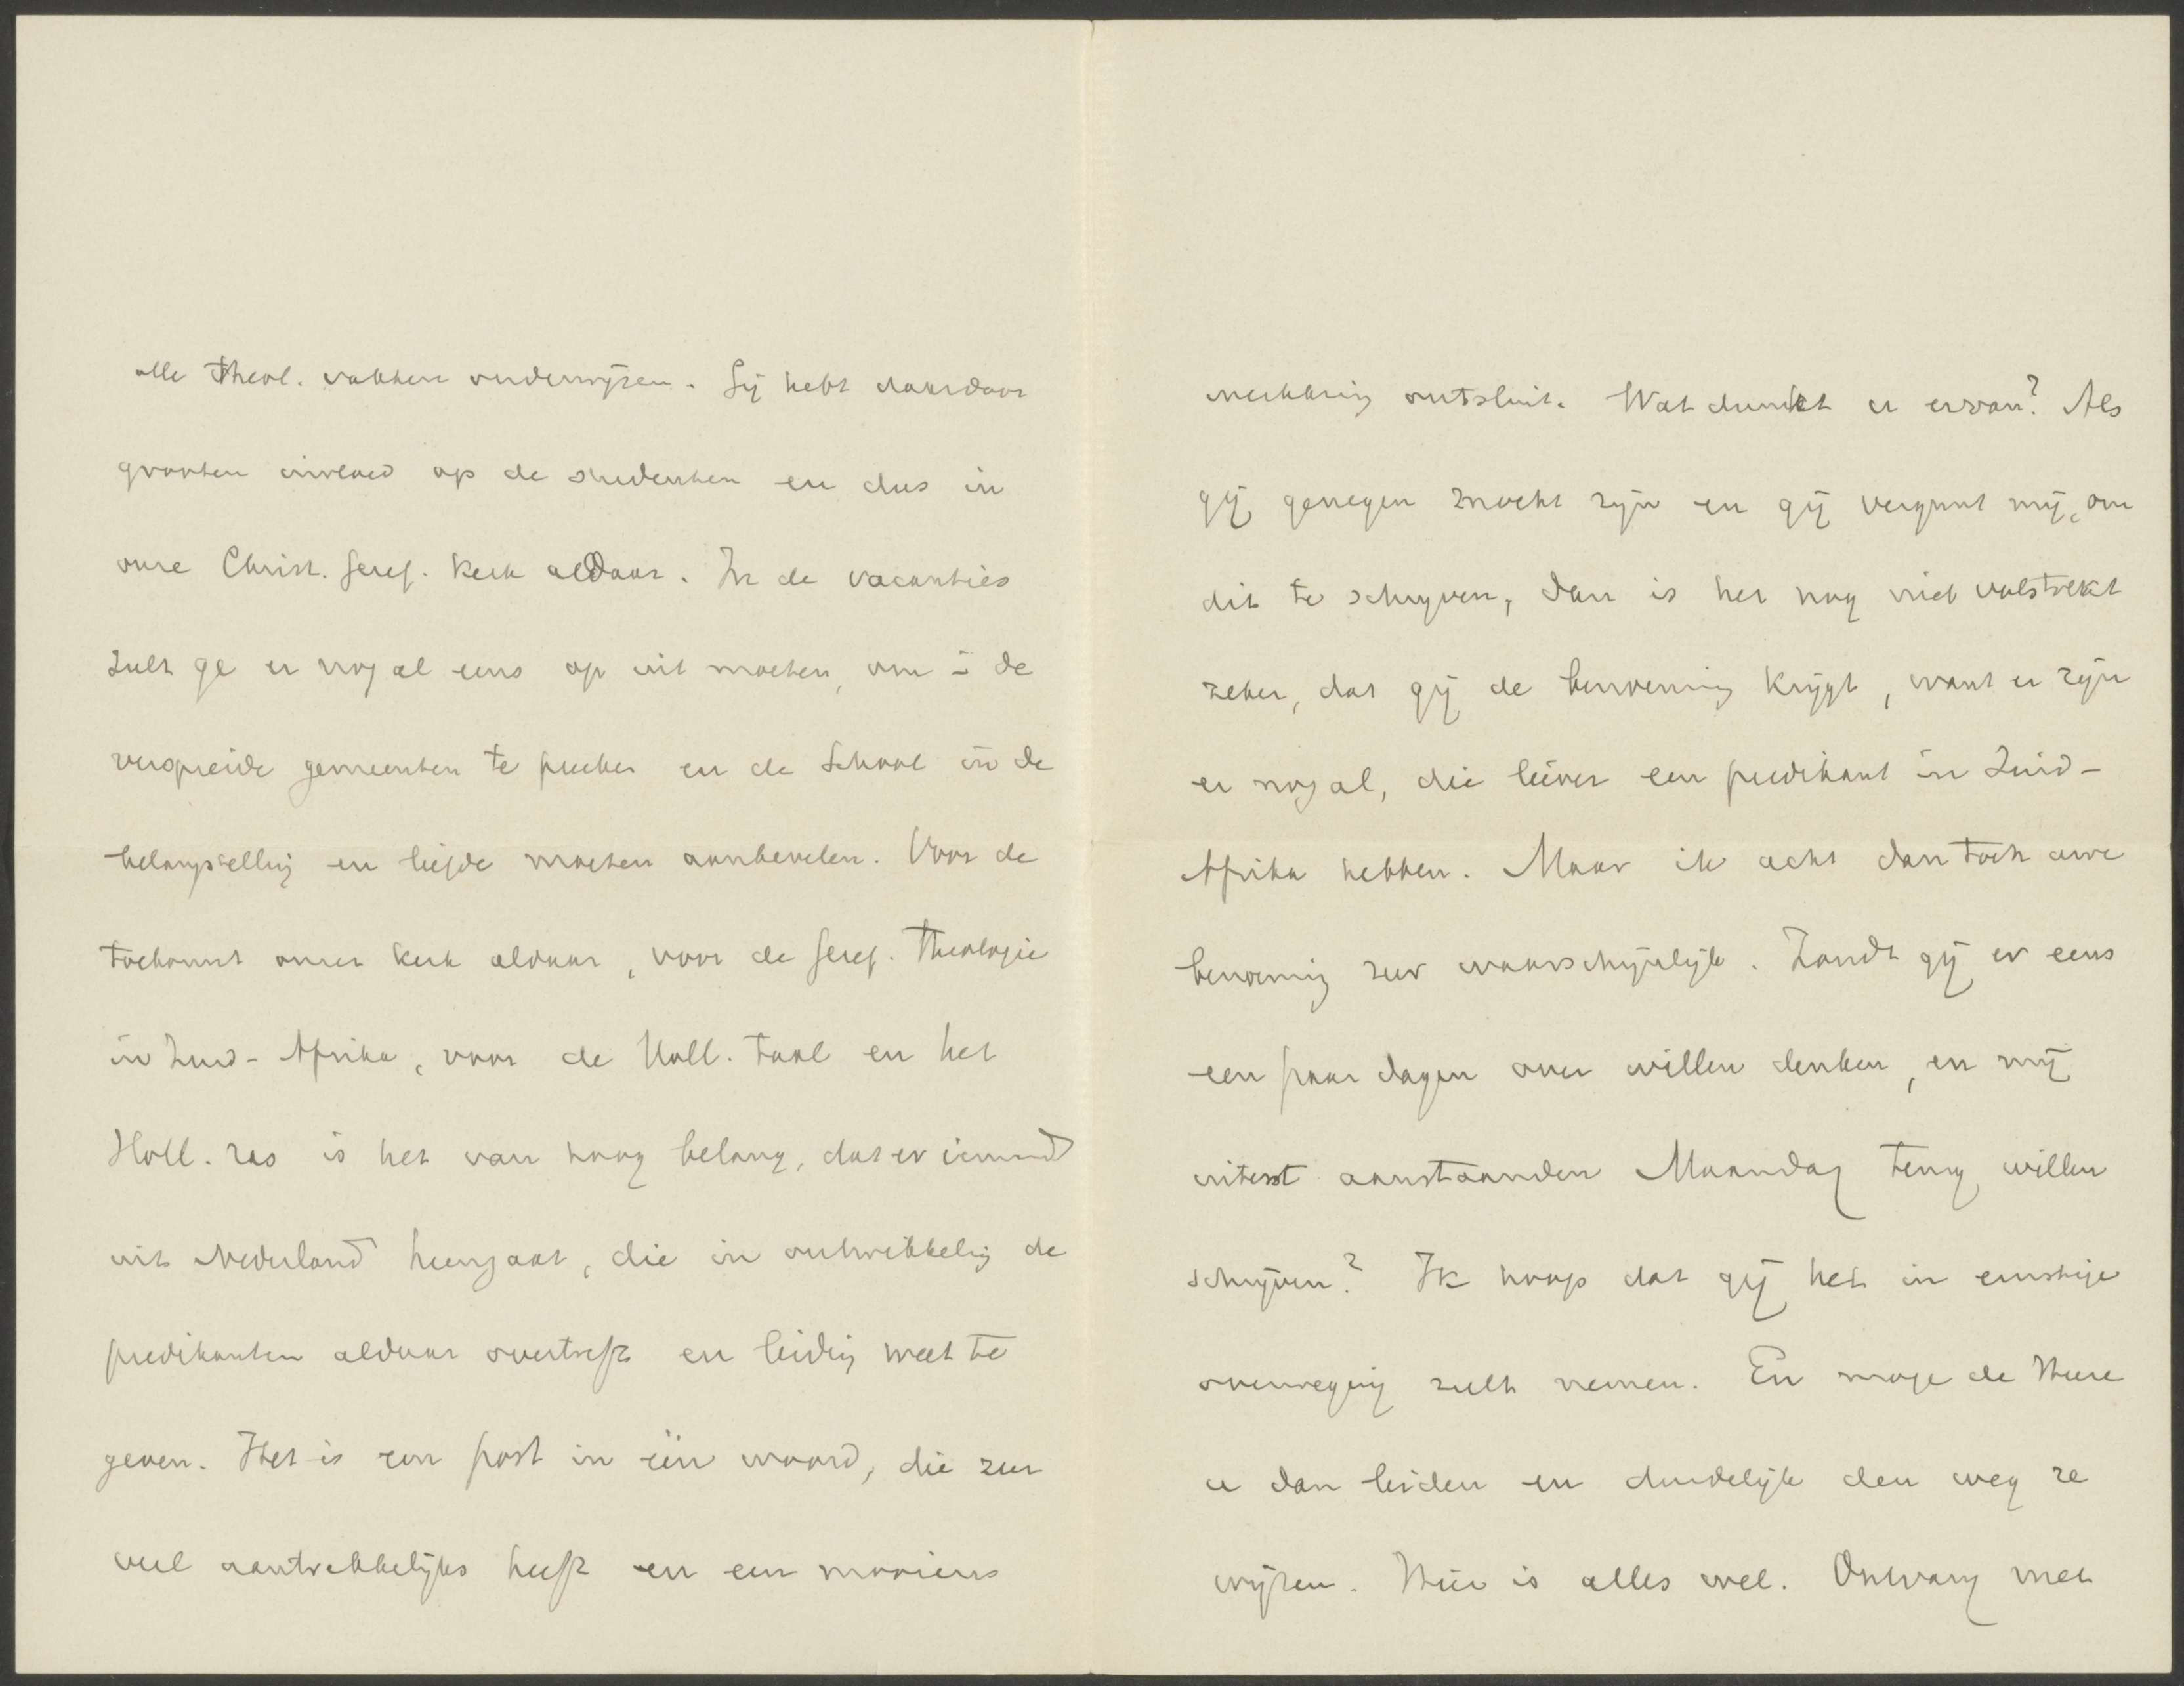 alle Theol. vakken onderwijzen. Gij hebt daardoor
grooten invloed op de studenten en dus in
onze Christ. Geref. Kerk aldaar. In de vacanties
zult ge er nog al eens op uit moeten, om i de
verspreide gemeenten te preeken en de School in de
belangstelling en liefde moeten aanbevelen. Voor de
toekomst onzer Kerk aldaar, voor de Geref. Theologie
in Zuid-Afrika, voor de Holl. taal en het
Holl. ras is het van hoog belang, dat er iemand
uit Nederland heengaat, die in ontwikkeling de
predikanten aldaar overtreft en leiding weet te
geven. Het is een post in één woord, die zeer
veel aantrekkelijks heeft en een mooien
werkkring ontsluit. Wat dunkt u ervan? Als
gij genegen mocht zijn en gij vergunt mij, om
dit te schrijven, dan is het nog niet volstrekt
zeker, dat gij de benoeming krijgt, want er zijn
er nog al, die liever een predikant in Zuid-
Afrika hebben. Maar ik acht dan toch uwe
benoeming zeer waarschijnlijk. Zoudt gij er eens
een paar dagen over willen denken, en mij
uiterst aanstaanden Maandag terug willen
schrijven? Ik hoop dat gij het in ernstige
overweging zult nemen. En moge de Heere
u dan leiden en duidelijk den weg ze
wijzen. Hier is alles wel. Ontvang met